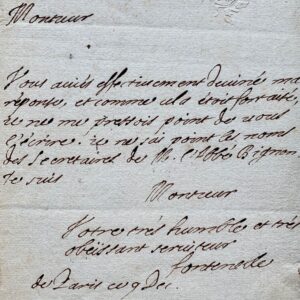 Monsieur
Vous aviés effectivement deviné ma
réponse, et comme cela étoit fort aisé,
je ne me pressois point de vous
l'écrire. je ne sai point les noms
des Secretaires de M. l'Abbé Bignon
Je suis
Monsieur
Votre trés humble et trés
obéissant serviteur
fontenelle
de Paris ce 9 Dec.